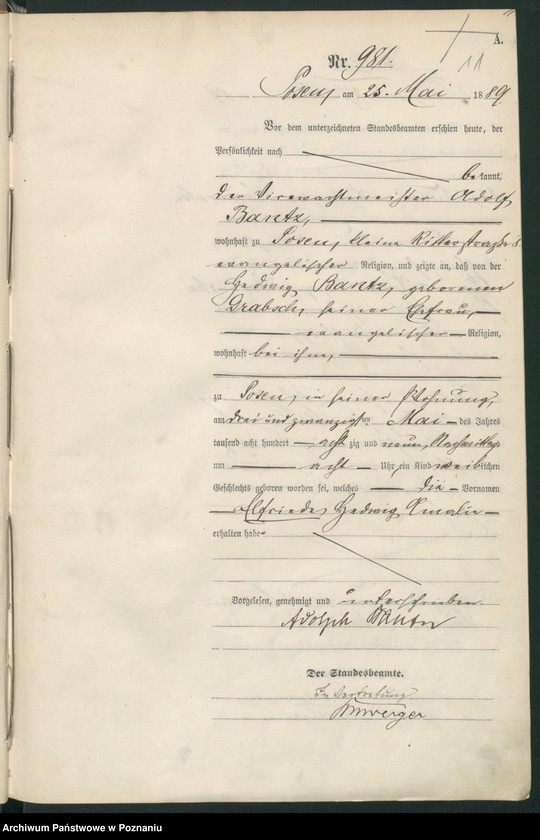 A.
11
Nr. 981.
Posen, am 25. Mai 1889.
Vor dem unterzeichneten Standesbeamten erschien heute, der
Persönlichkeit nach
bekannt,
der Vicewachtmeister Adolf
Bantz,
wohnhaft zu Posen, kleine Ritterstraße
evangelischer Religion, und zeigte an, daß von der
Hedwig Bantz, geborenen
Drabsch, seiner Ehefrau,
evangelischer Religion,
wohnhaft bei ihm,
zu Posen, in seiner Wohnung,
am drei und zwanzigsten Mai des Jahres
tausend acht hundert achtzig und neun, Nachmittags
um acht Uhr, ein Kind weiblichen
Geschlechts geboren worden sei, welches die Vornamen
Elfriede, Hedwig, Amalie
erhalten habe
Vorgelesen, genehmigt und unterschrieben.
Adolph Bantz
Der Standesbeamte.
In Vertretung
Archiwum Państwowe w Poznaniu